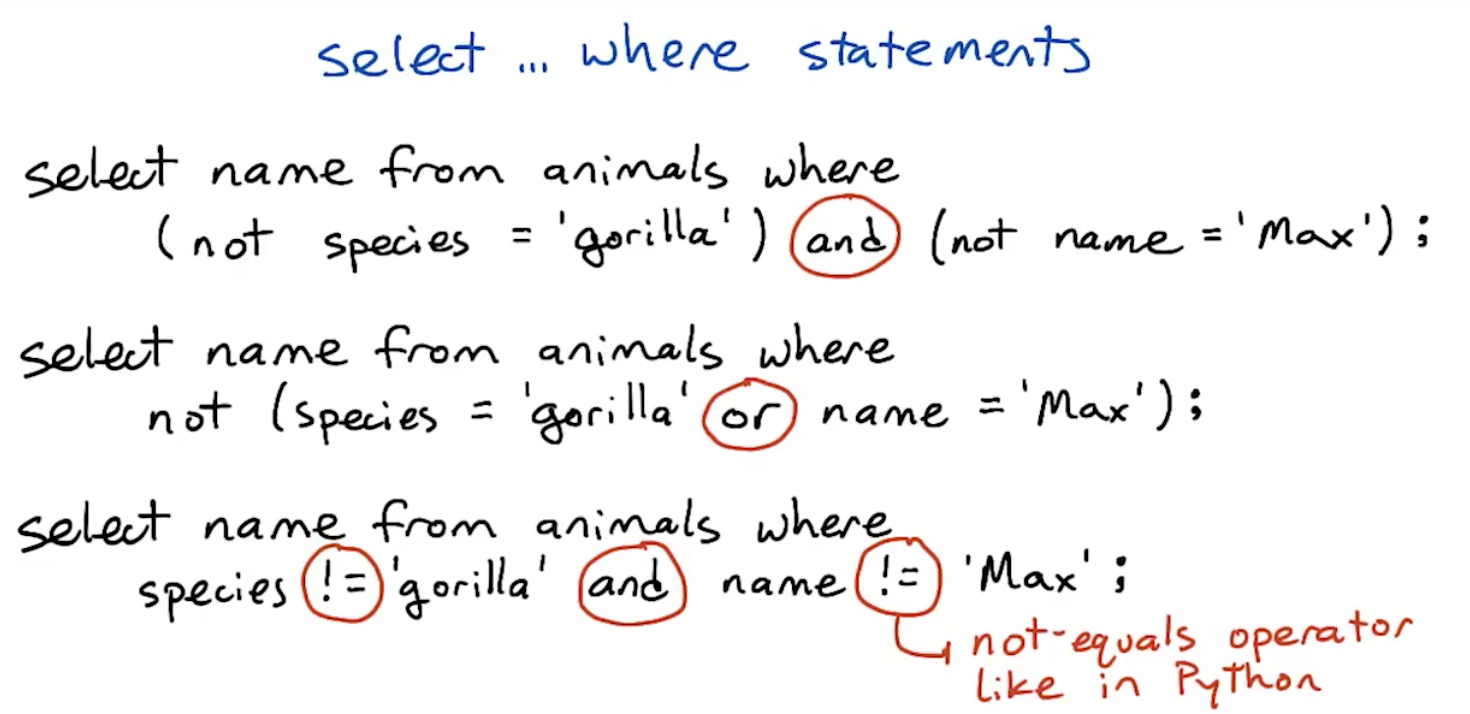 select ... where statements
select name from animals where
(not species = 'gorilla') and (not name = 'Max');
select name from animals where
not (species = 'gorilla' or name = 'Max');
select name from animals where
species != 'gorilla' and name != 'Max';
not-equals operator
like in Python